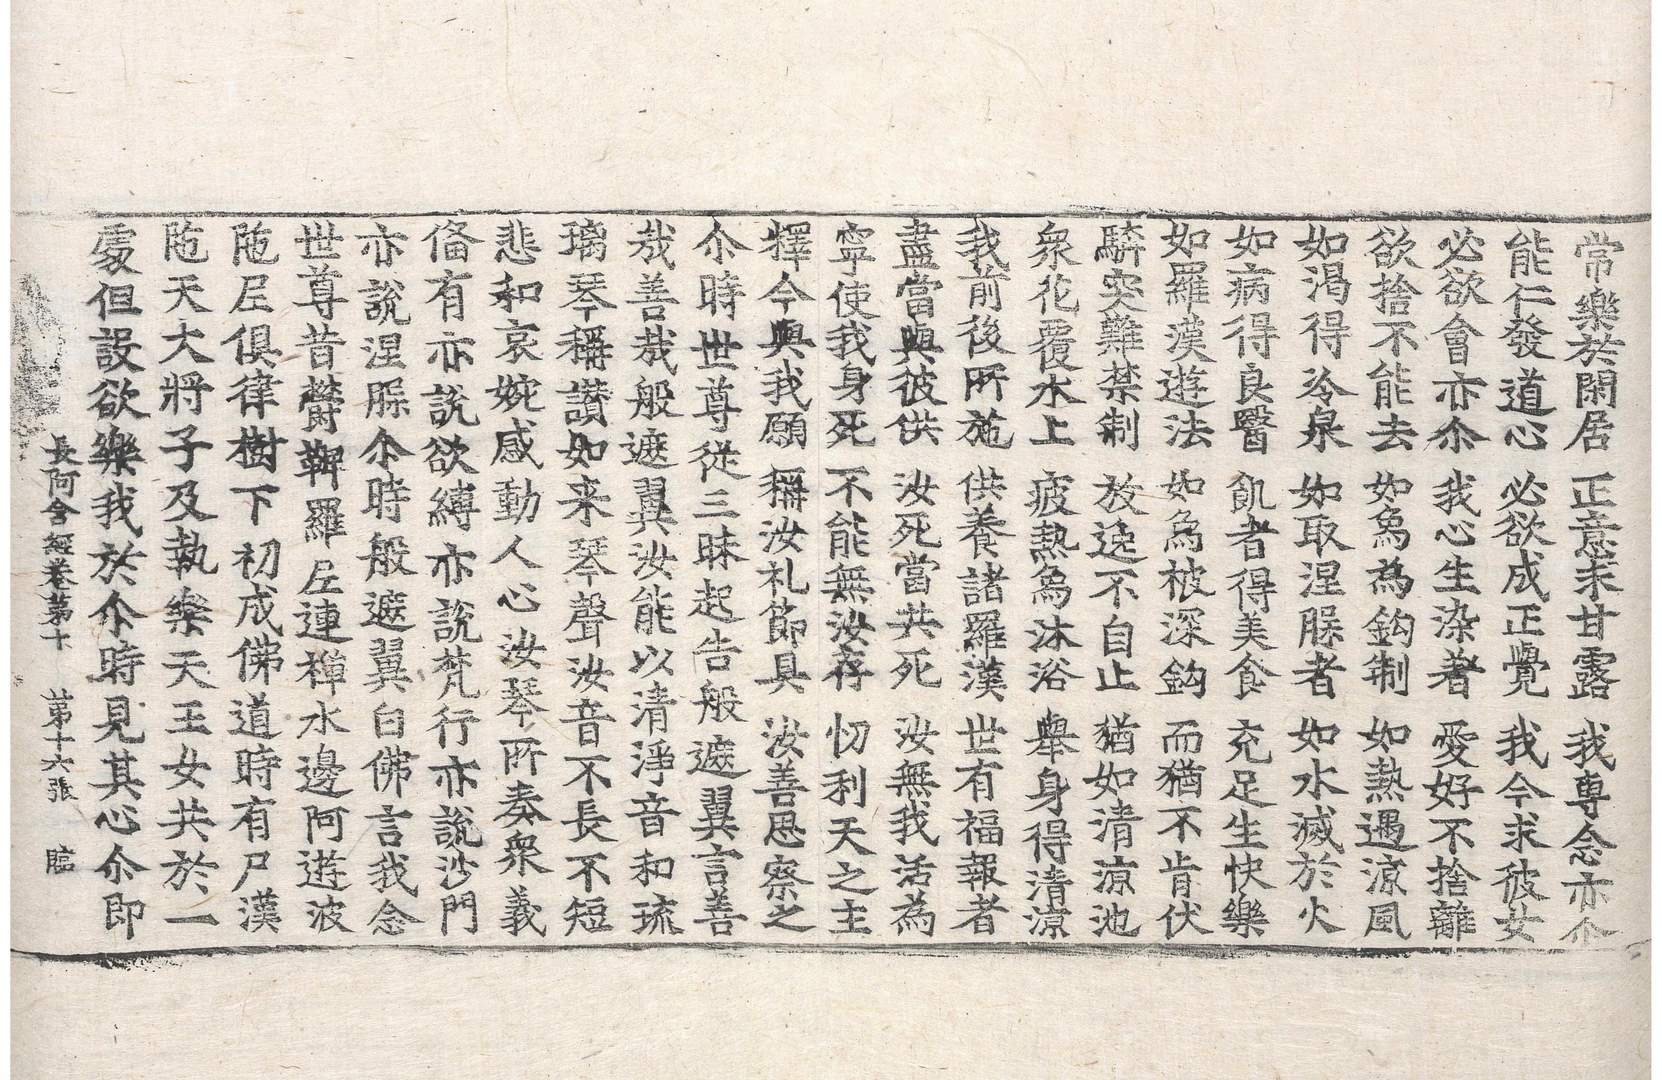 常樂於閑居 正意求甘露 我專念亦尒
能仁發道心 必欲成正覺 我今求彼女
必欲會亦尒 我心生染著 愛好不捨離
欲捨不能去 如烏為鈎制 如熱遇涼風
如渴得冷泉 如取涅槃者 如水滅於火
如病得良醫 飢者得美食 充足生快樂
如羅漢遊法 如烏被深鈎 而猶不肯伏
騎突難禁制 放逸不自止 猶如清涼池
衆花覆水上 疲熱烏沐浴 舉身得清涼
我前後所施 供養諸羅漢 世有福報者
盡當與彼供 汝死當共死 汝無我活為
寧使我身死 不能無汝存 忉利天之主
釋今與我願 稱汝礼節具 汝善思察之
尒時世尊從三昧起告般遮翼言善
哉善哉般遮翼汝能以清淨音和琉
璃琴稱讃如来琴聲汝音不長不短
悲和哀婉感動人心汝琴所奏衆義
俻有亦說欲縛亦說梵行亦說沙門
亦說涅槃尒時般遮翼白佛言我念
世尊昔欝鞞羅尼連禪水邊阿遊波
陁尼俱律樹下初成佛道時有尸漢
陁天大將子及執樂天王女共於一
處但設欲樂我於尒時見其心尒即
長阿含經卷第十 第十六張 臨